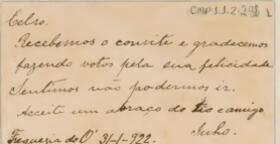 CMP 1.1.2.298 1
Celso.
Recebemos o convite e gradecemos
fazendo votos pela sua felicidade
Sentimos não podermos ir.
Acceite um abraço do tio e amigo
Freguezia do O' 31-1-922. Julio.